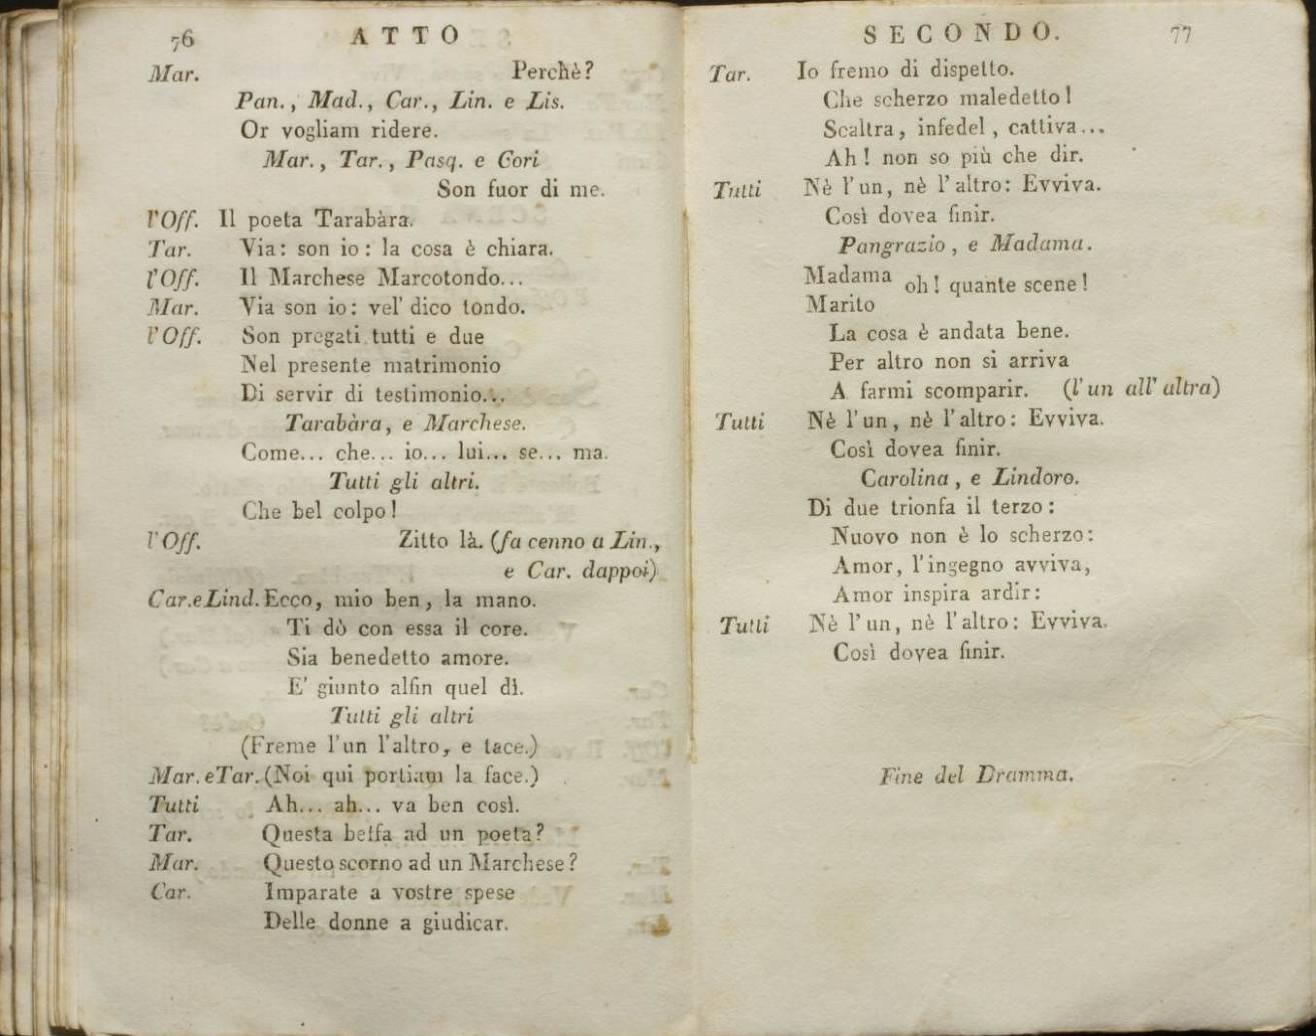 76 ATTO
Mar. Perchè?
Pan., Mad., Car., Lin. e Lis.
Or vogliam ridere.
Mar., Tar., Pasq. e Gori
Son fuor di me.
l'Off. Il poeta Tarabàra.
Tar. Via: son io: la cosa è chiara.
l'Off. Il Marchese Marcotondo...
Mar. Via son io: vel' dico tondo.
l'Off. Son pregati tutti e due
Nel presente matrimonio
Di servir di testimonio...
Tarabàra, e Marchese.
Come... che... io... lui... se... ma.
Tutti gli altri.
Che bel colpo!
l'Off. Zitto là. (fa cenno a Lin.,
e Car. dappoi)
Car.eLind. Ecco, mio ben, la mano.
Ti dò con essa il core.
Sia benedetto amore.
E' giunto alfin quel dì.
Tutti gli altri
(Freme l'un l'altro, e tace.)
Mar. eTar. (Noi qui portiam la face.)
Tutti Ah... ah... va ben così.
Tar. Questa beffa ad un poeta?
Mar. Questo scorno ad un Marchese?
Car. Imparate a vostre spese
Delle donne a giudicar.
SECONDO. 77
Tar. Io fremo di dispetto.
Che scherzo maledetto!
Scaltra, infedel, cattiva...
Ah! non so più che dir.
Tutti Nè l'un, nè l'altro: Evviva.
Così dovea finir.
Pangrazio, e Madama.
Madama oh! quante scene!
Marito
La cosa è andata bene.
Per altro non si arriva
A farmi scomparir. (l'un all'altra)
Tutti Nè l'un, nè l'altro: Evviva.
Così dovea finir.
Carolina, e Lindoro.
Di due trionfa il terzo:
Nuovo non è lo scherzo:
Amor, l'ingegno avviva,
Amor inspira ardir:
Tutti Nè l'un, nè l'altro: Evviva.
Così dovea finir.
Fine del Dramma.